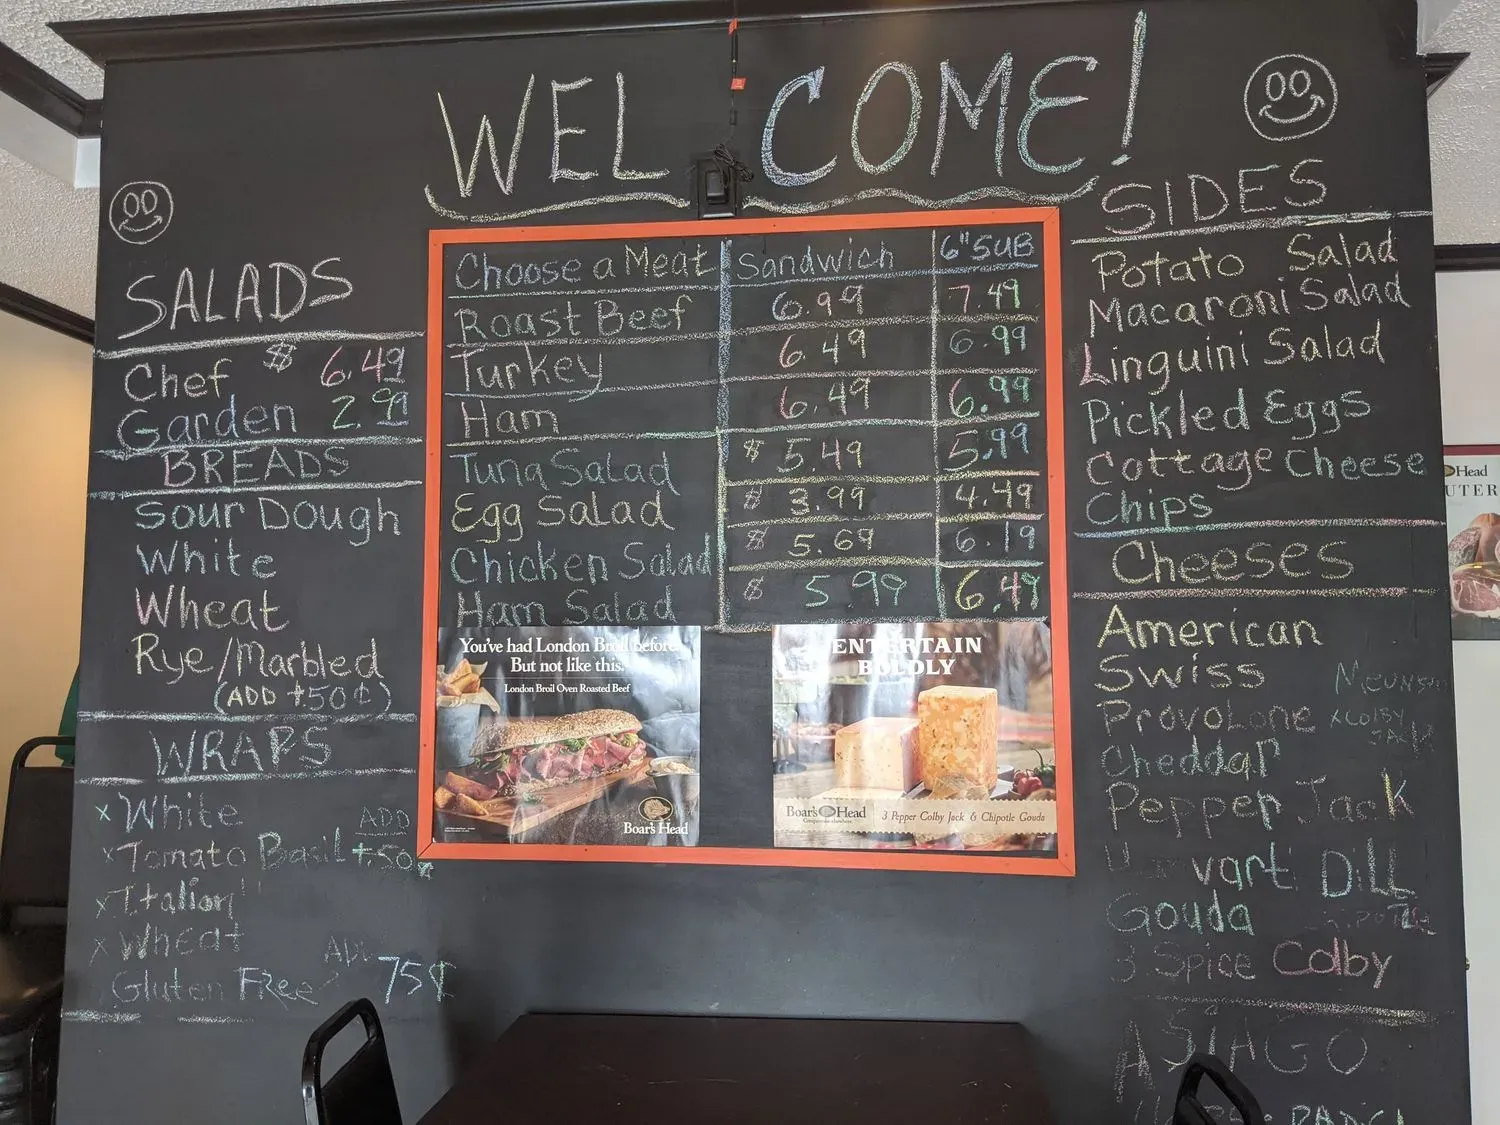 WEL COME!
SALADS
Chef $ 6.49
Garden 2.99
BREADS
Sour Dough
White
Wheat
Rye/Marbled
(ADD +50¢)
WRAPS
x White
ADD
x Tomato Basil +50¢
x Italian
x Wheat
ADD
Gluten Free 75¢
Choose a Meat Sandwich 6" SUB
Roast Beef 6.99 7.49
Turkey 6.49 6.99
Ham 6.49 6.99
Tuna Salad $ 5.49 5.99
Egg Salad $ 3.99 4.49
Chicken Salad $ 5.69 6.19
Ham Salad $ 5.99 6.49
You've had London Broil before.
But not like this.
London Broil Oven Roasted Beef
Boar's Head
ENTERTAIN
BOLDLY
Boar's Head
3 Pepper Colby Jack & Chipotle Gouda
SIDES
Potato Salad
Macaroni Salad
Linguini Salad
Pickled Eggs
Cottage Cheese
Chips
Cheeses
American
Swiss
Provolone
x COLBY
JACK
Cheddar
Pepper Jack
Dill
Gouda
3 Spice Colby
ASIAGO
Head